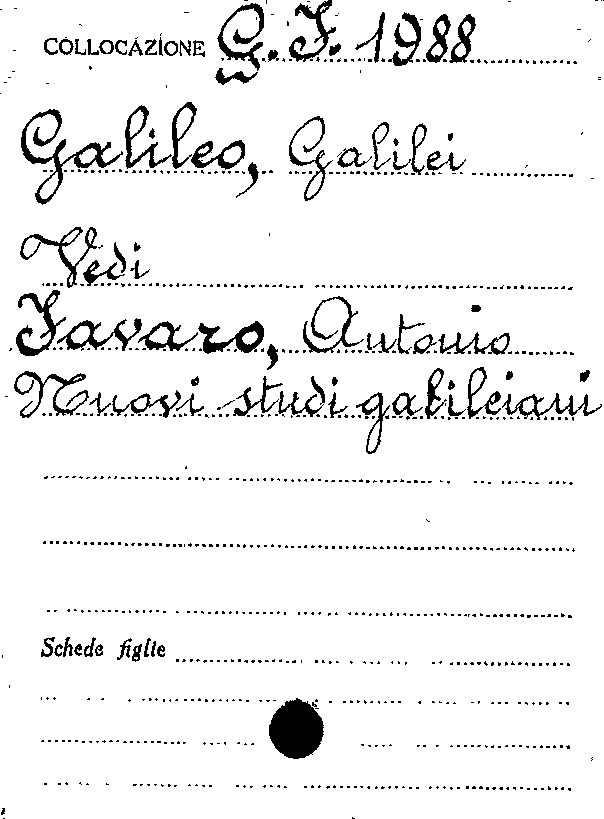 COLLOCAZIONE G. F. 1988
Galileo, Galilei
Vedi
Favaro, Antonio
Nuovi studi galileiani
Schede figlie